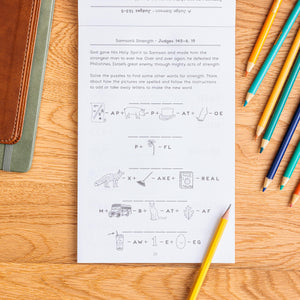 Samson's Strength - Judges 14:5-6, 19
God gave His Holy Spirit to Samson and made him the
strongest man to ever live. Over and over again, he defeated the
Philistines, Israel's great enemy, through mighty acts of strength.
Solve the puzzles to find some other words for strength. Think
about how the pictures are spelled and follow the instructions
to add or take away letters to make the new word.
- AP + - P + - AT + - OE
P + - FL
X + - AKE + - REAL
H + - B + - AT + - AF
- AW + 1 - E + - EG